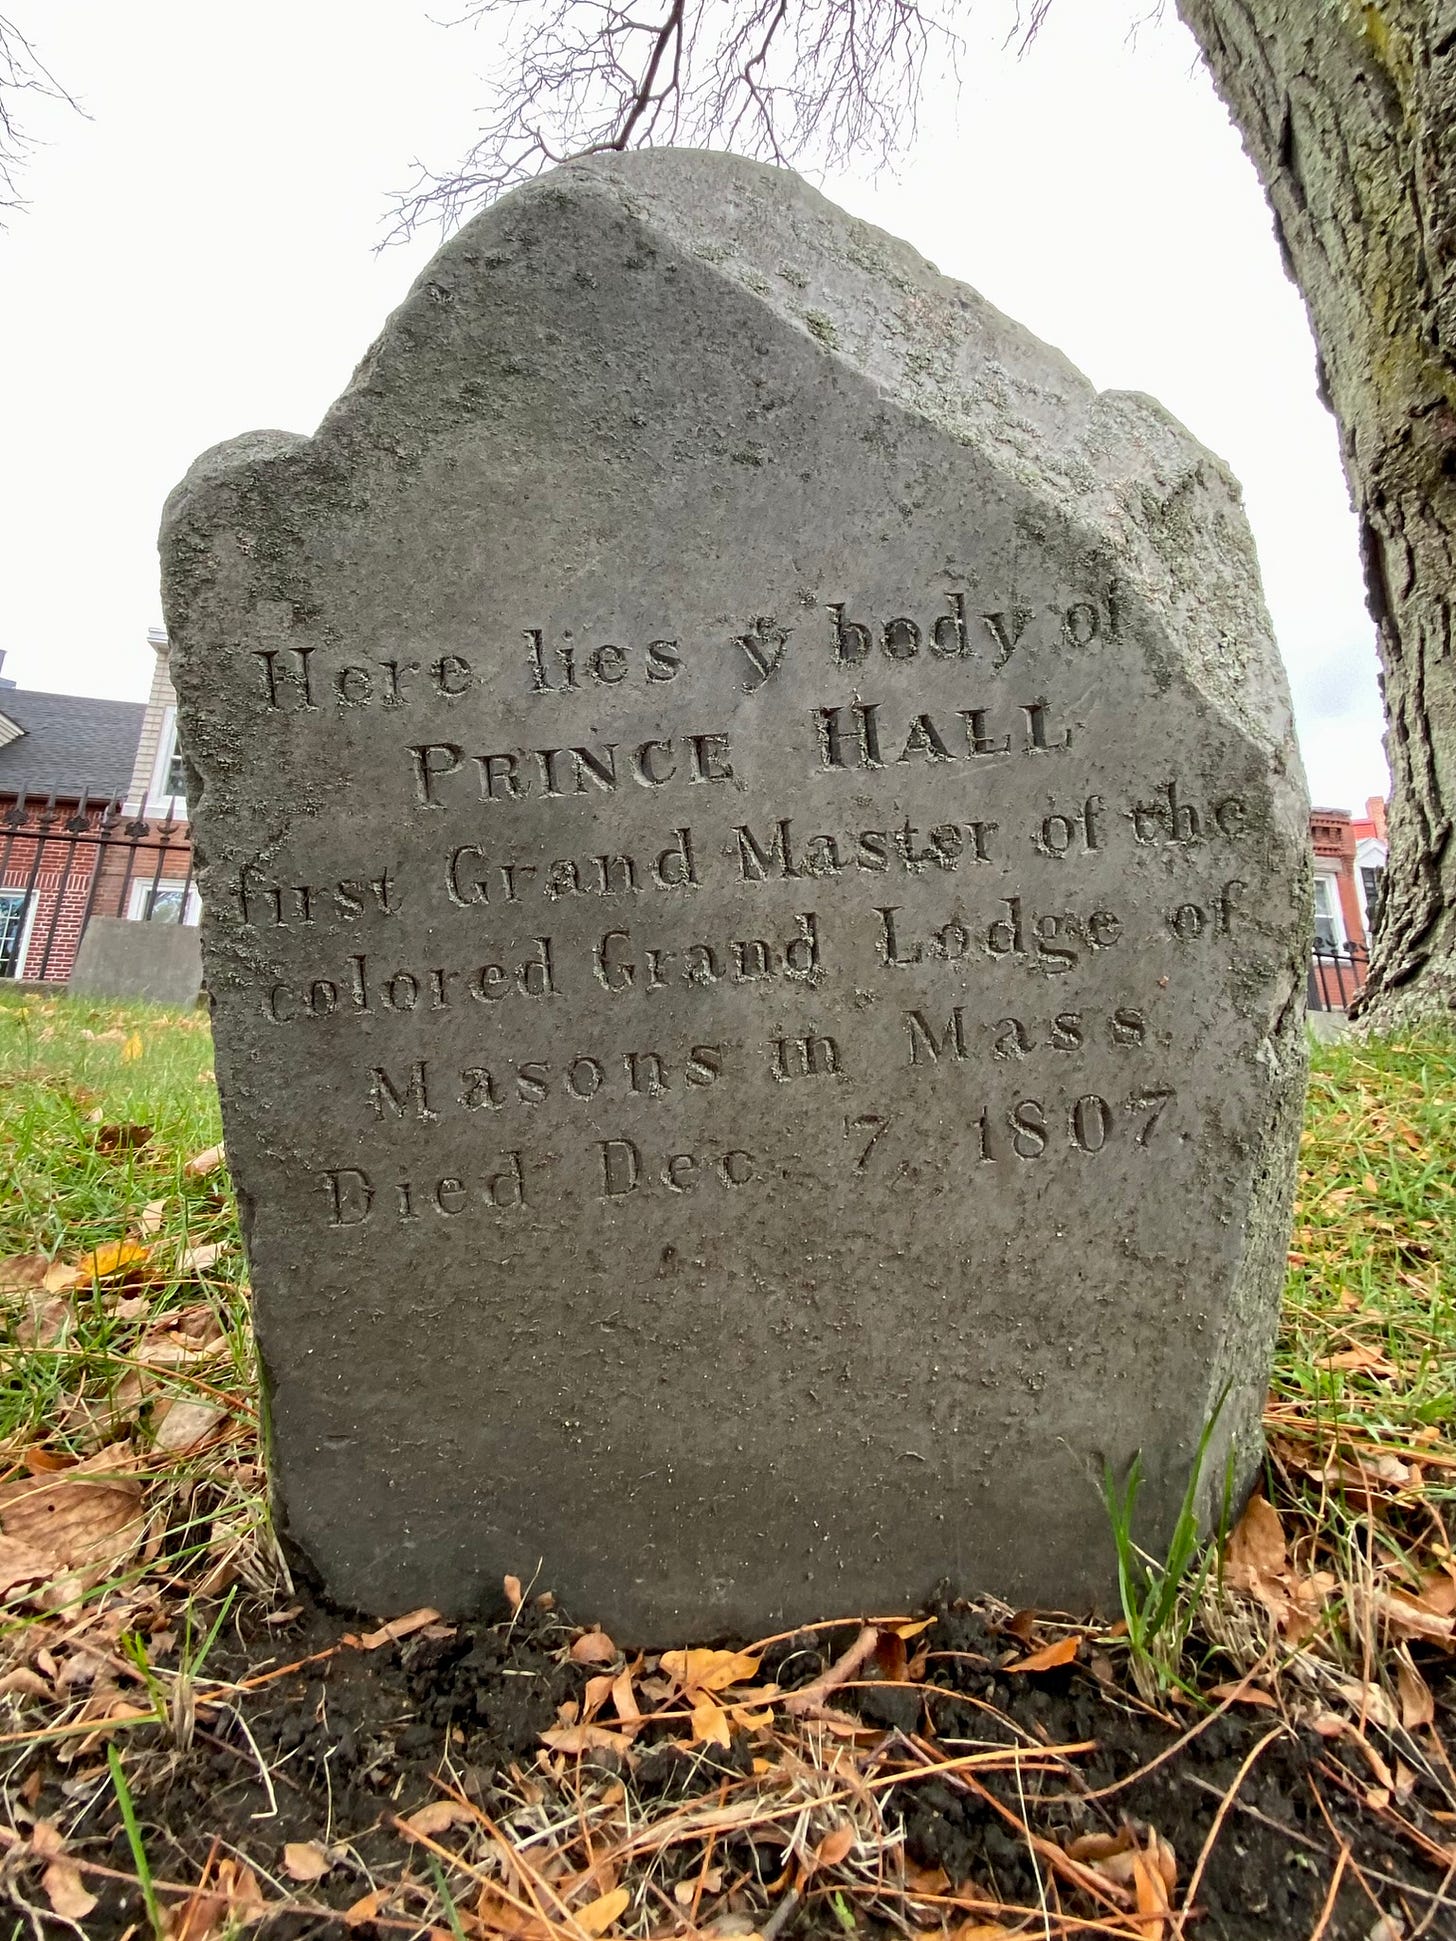 Here lies yͤ body of
PRINCE HALL
first Grand Master of the
colored Grand Lodge of
Masons in Mass.
Died Dec. 7, 1807.